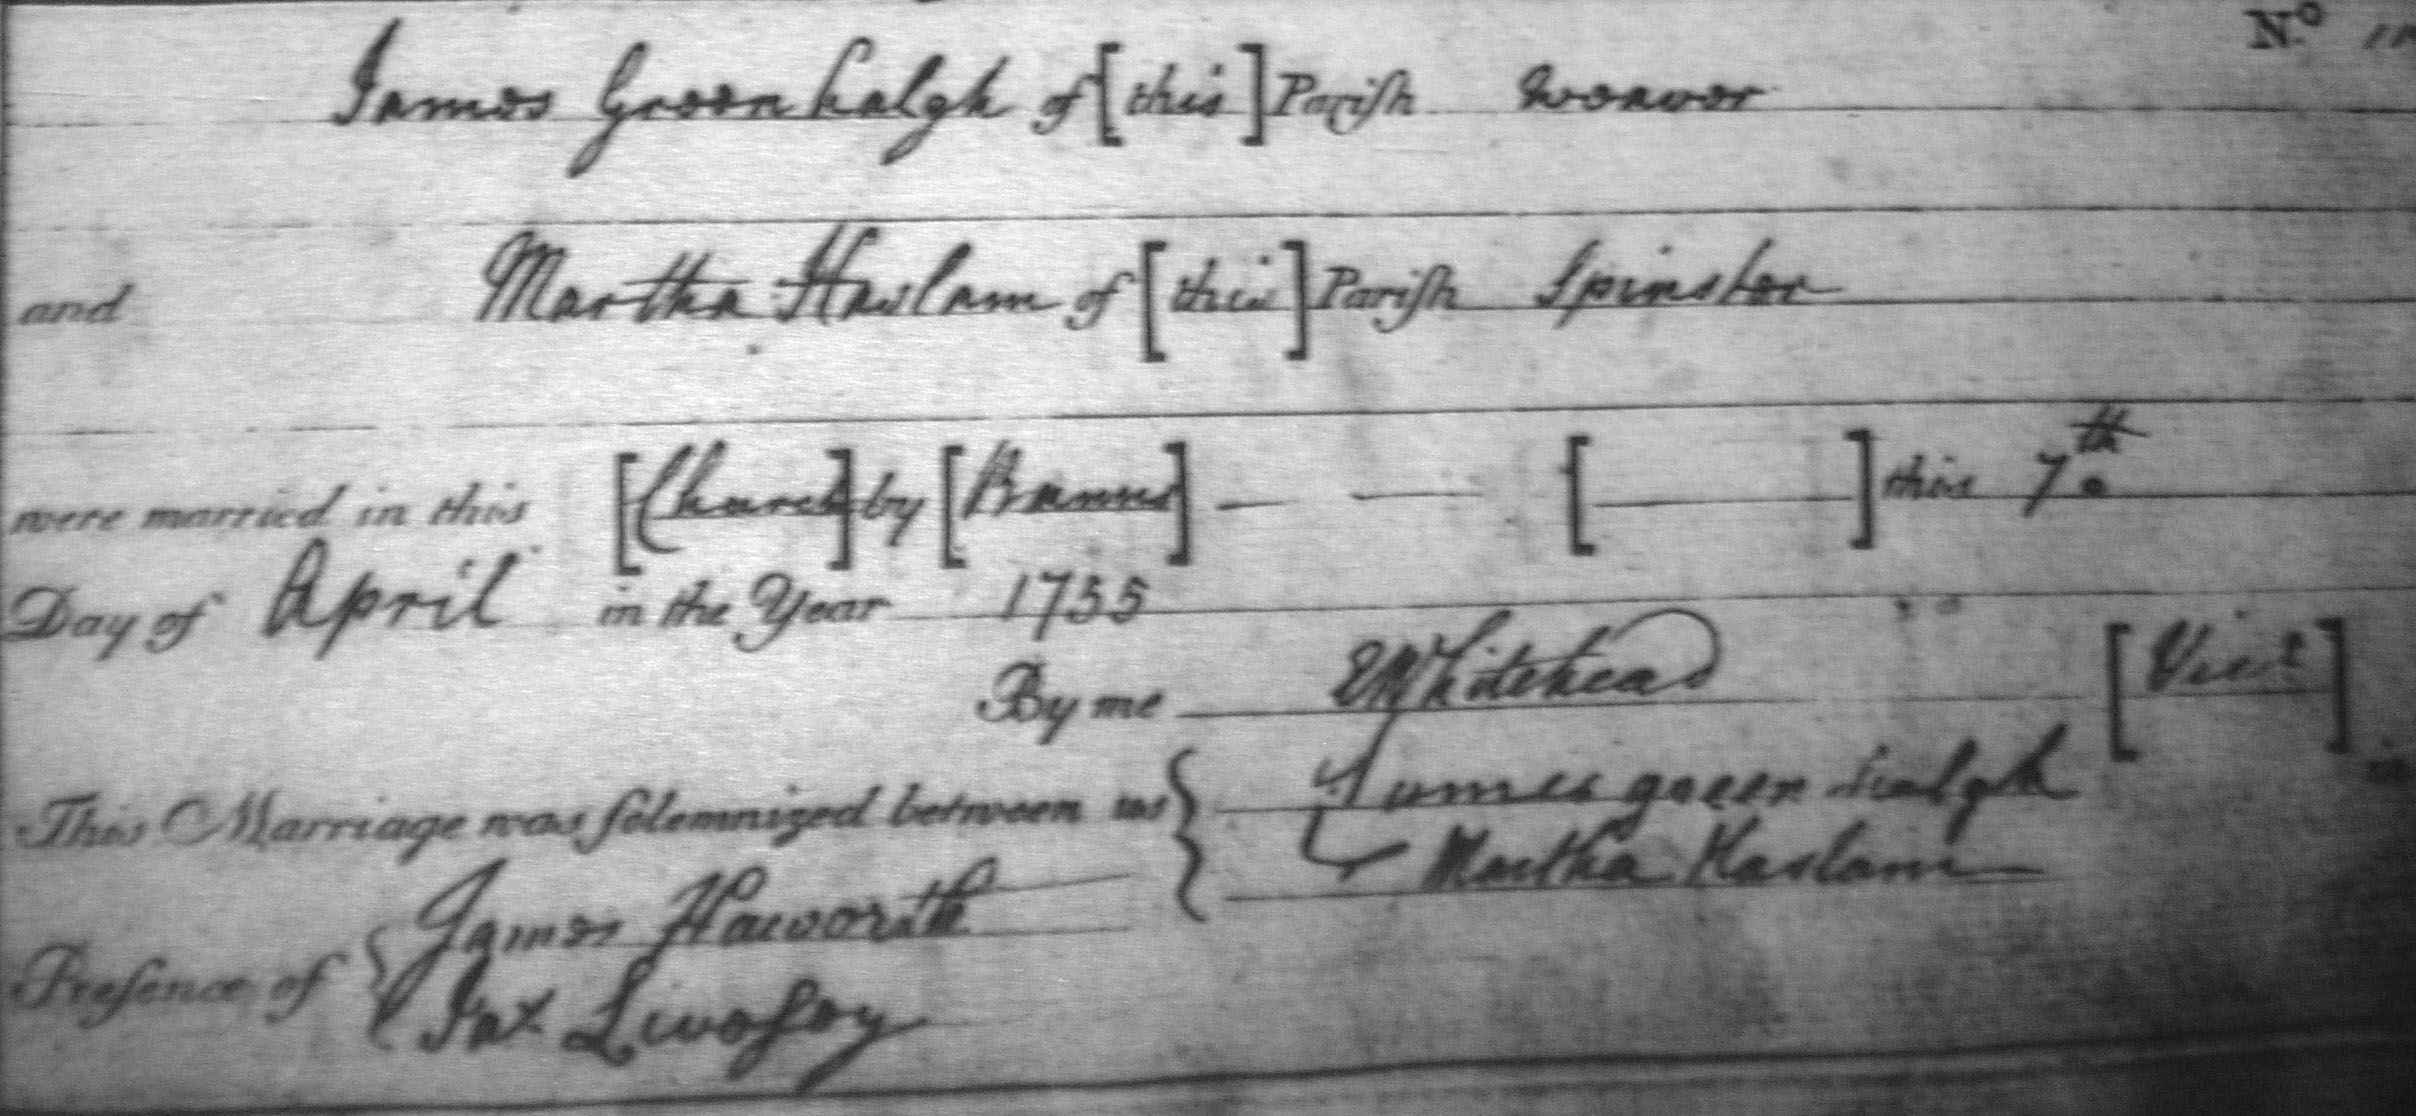 N.o
James Greenhalgh of [this] Parish weaver
and Martha Haslam of [this] Parish Spinster
were married in this [Church] by [Banns] — — [ — ] this 7th
Day of April in the Year 1755
By me EWhitehead [Vicr]
This Marriage was solemnized between us { James green halgh
Martha Haslam
Presence of { James Haworth
Jas Livesey